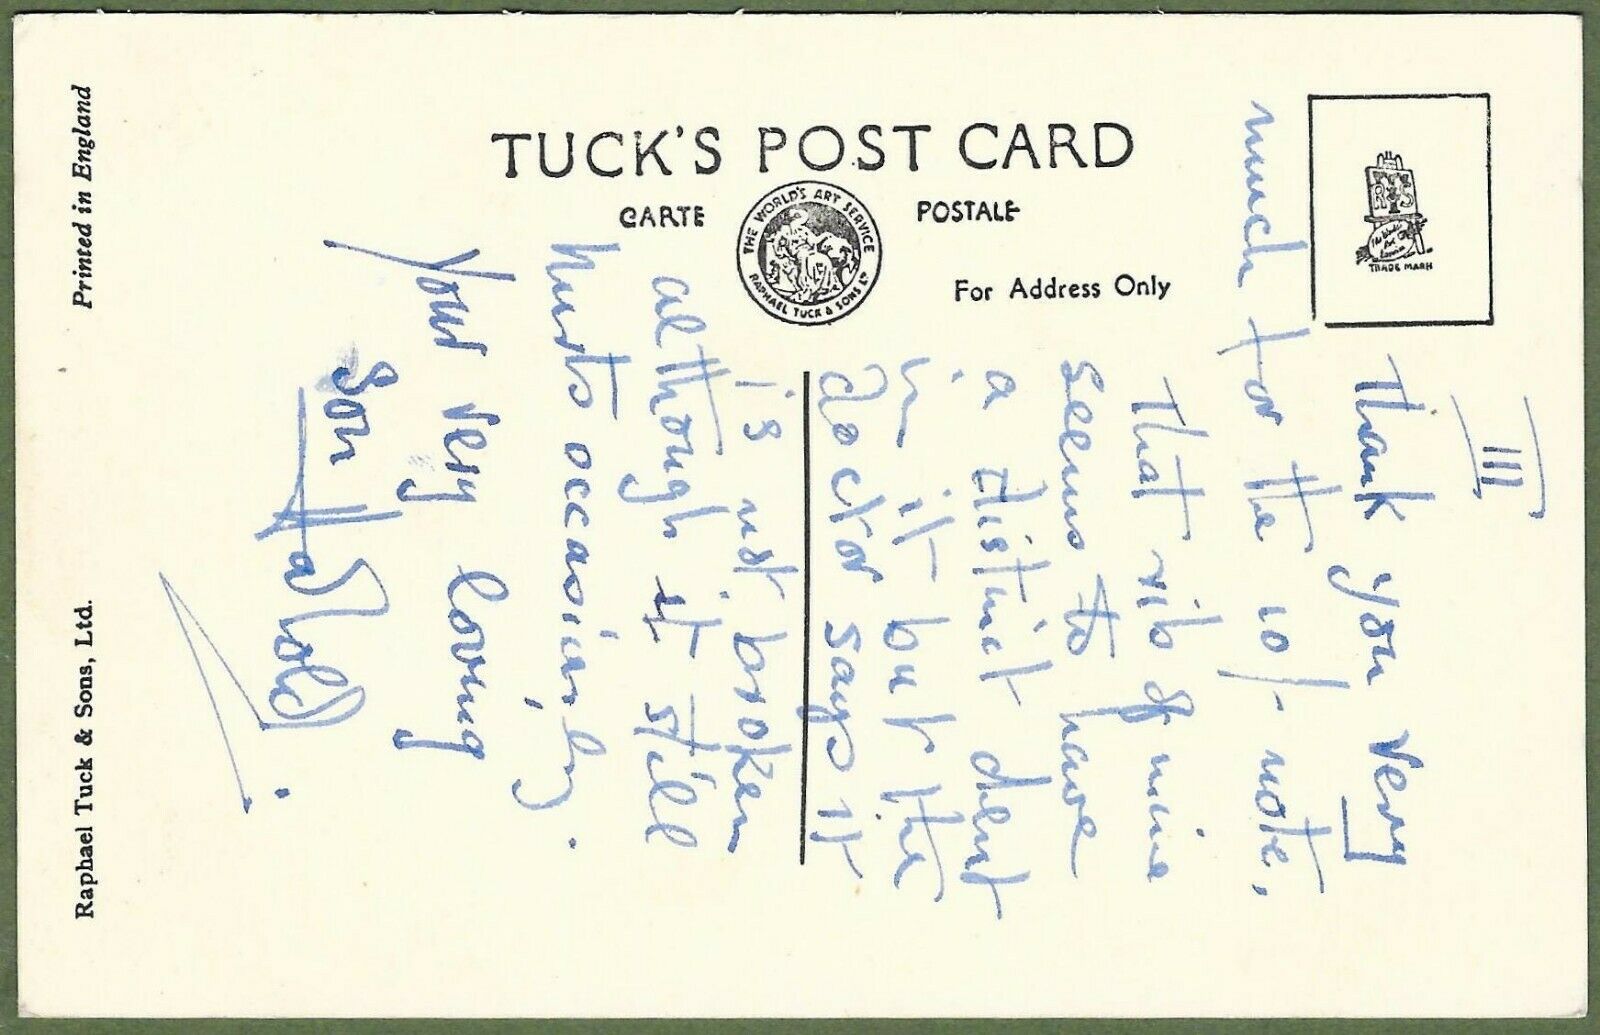 Printed in England
Raphael Tuck & Sons, Ltd.
TUCK'S POST CARD
CARTE POSTALE
THE WORLD'S ART SERVICE
RAPHAEL TUCK & SONS LTD
For Address Only
R T S
TRADE MARK
III
Thank you very
much for the 10/- note,
That rib of mine
seems to have
a distinct dent
in it but the
doctor says it
is not broken
although it still
hurts occasionly.
Your very loving
Son Harold.